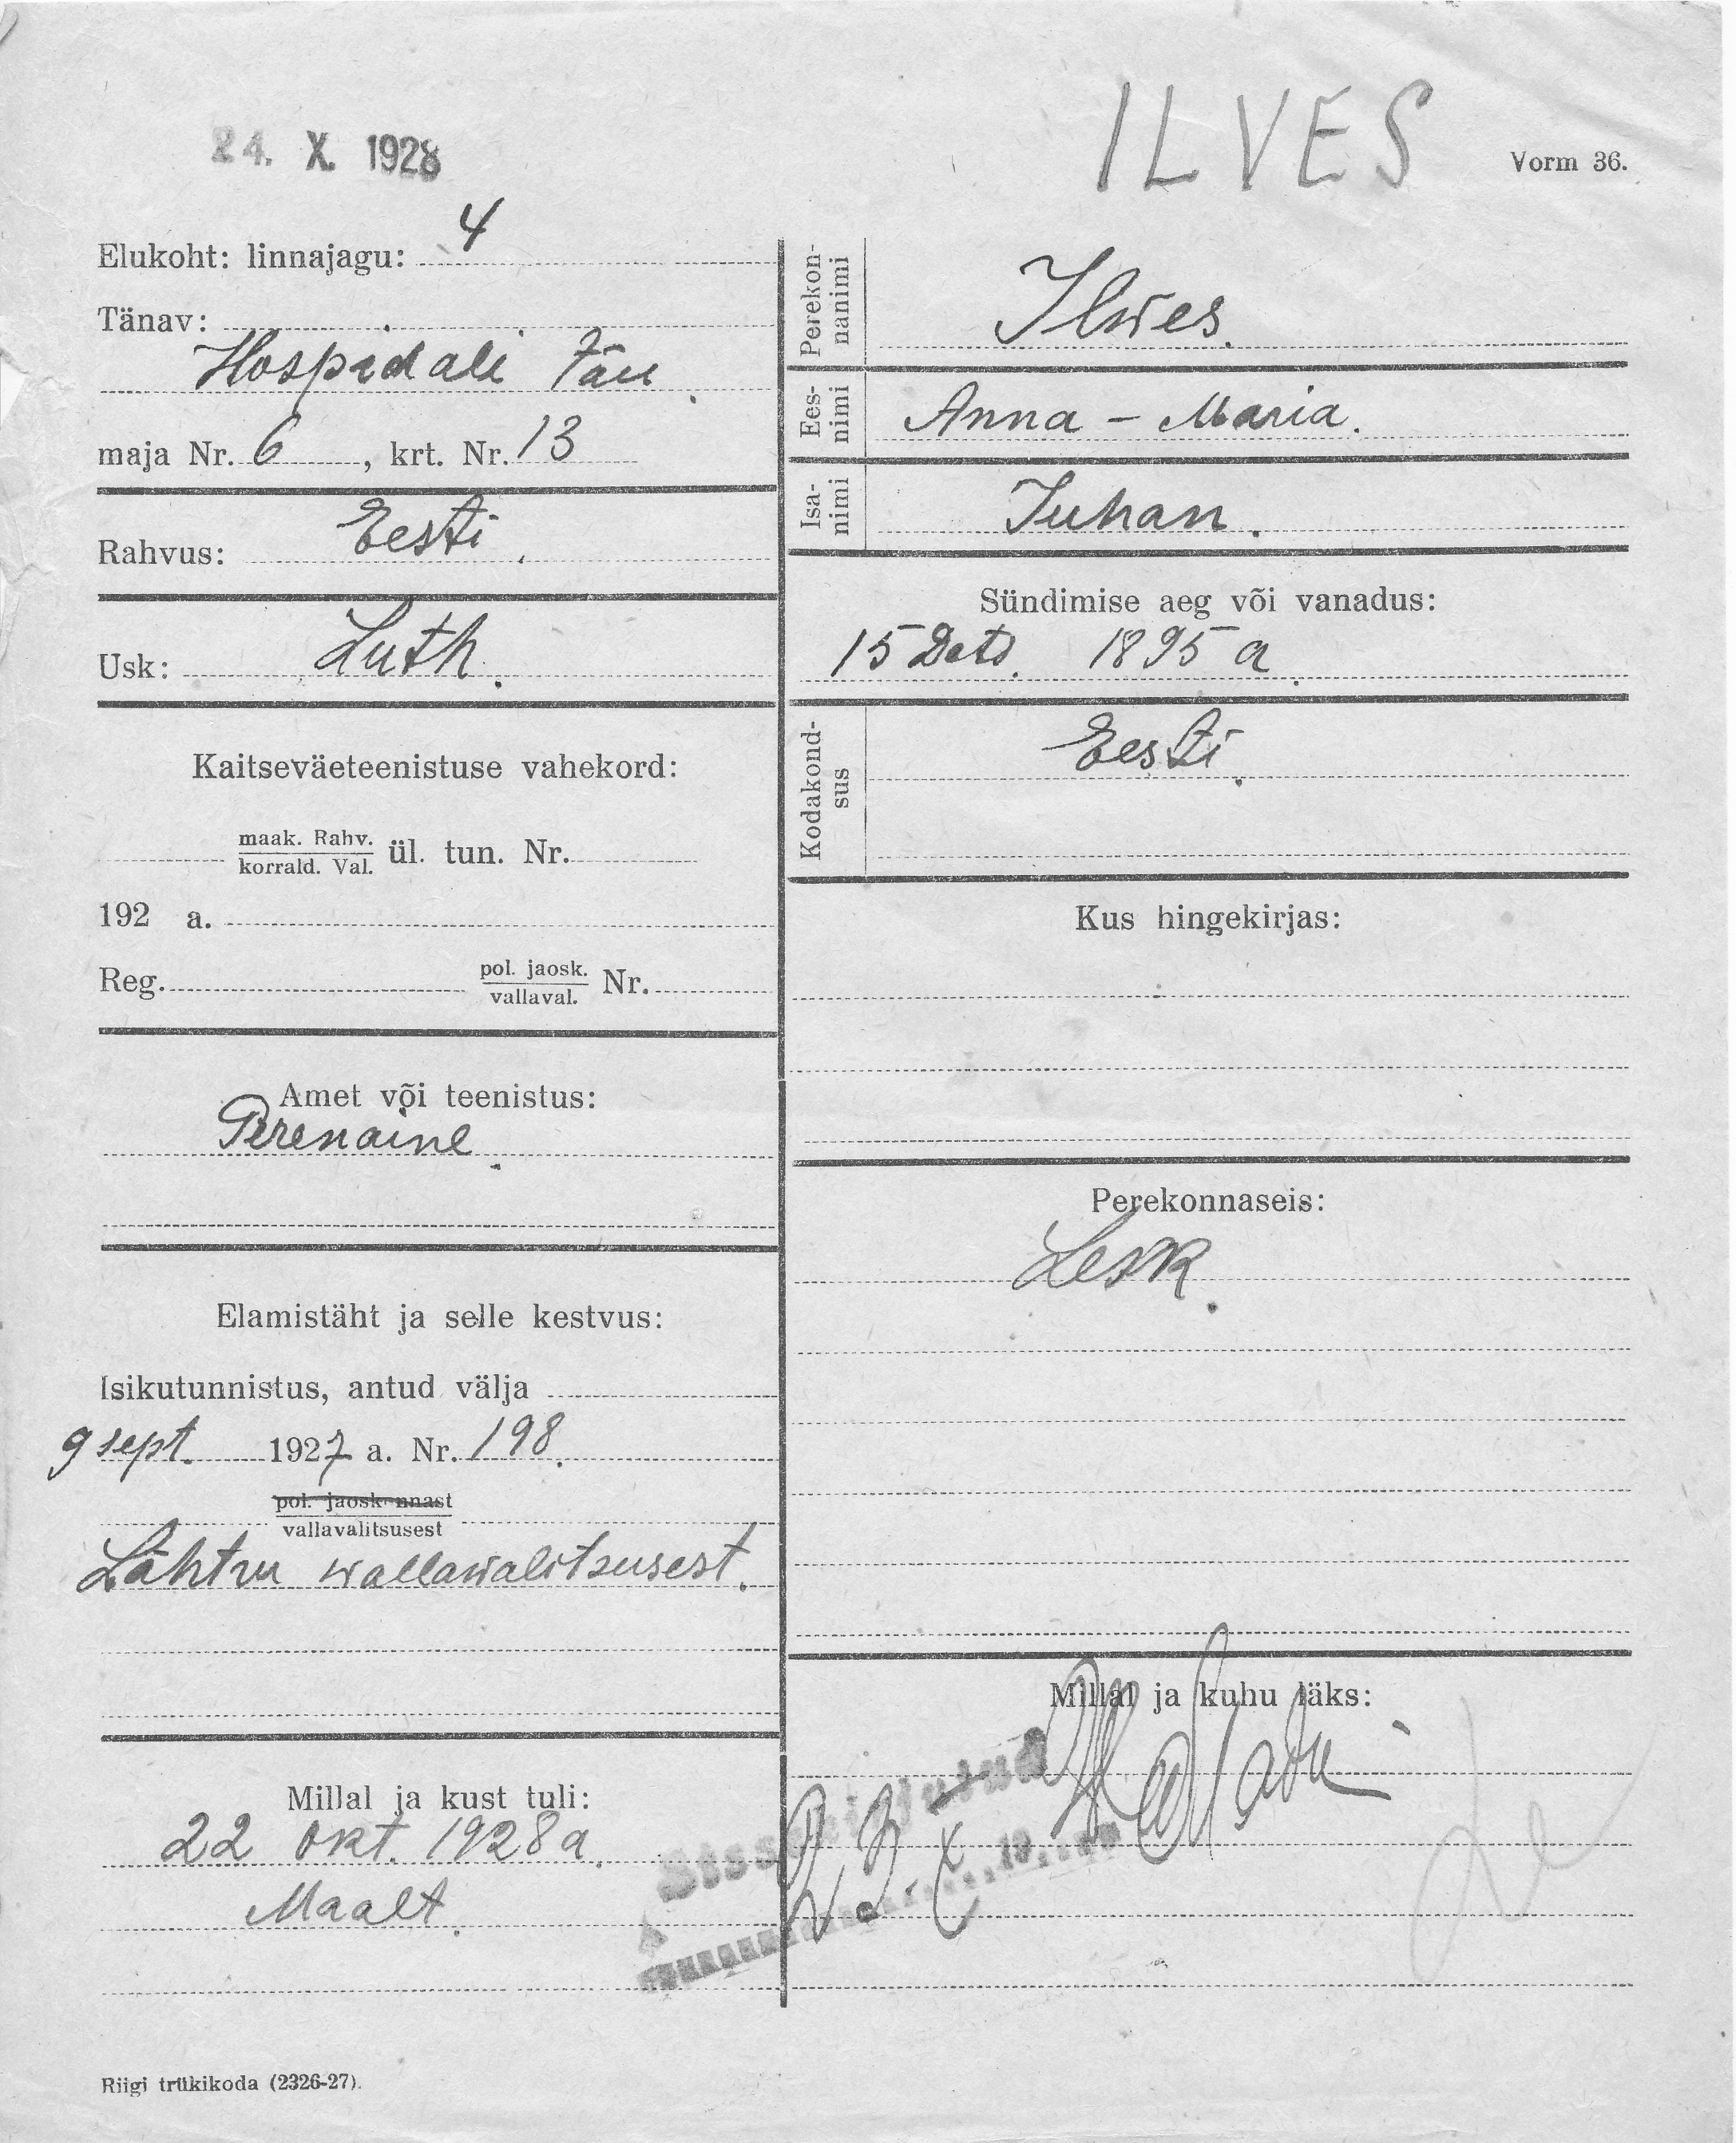 24. X. 1928
ILVES
Vorm 36.
Elukoht: linnajagu: 4
Tänav:
Hospidali tän.
maja Nr. 6, krt. Nr. 13
Rahvus: Eesti.
Usk: Luth.
Kaitseväeteenistuse vahekord:
maak. Rahv.
korrald. Val.
ül. tun. Nr.
192 a.
Reg.
pol. jaosk.
vallaval.
Nr.
Amet või teenistus:
Perenaine.
Elamistäht ja selle kestvus:
Isikutunnistus, antud välja
9 sept. 1927 a. Nr. 198.
pol. jaoskonnast
vallavalitsusest
Lähtru wallawalitsusest.
Millal ja kust tuli:
22 okt. 1928 a.
Maalt.
Riigi trükikoda (2326-27).
Perekon-
nanimi
Ilwes.
Ees-
nimi
Anna - Maria.
Isa-
nimi
Juhan.
Sündimise aeg või vanadus:
15 Dets. 1895 a.
Kodakond-
sus
Eesti.
Kus hingekirjas:
Perekonnaseis:
Lesk.
Millal ja kuhu läks:
Sissekirjutud